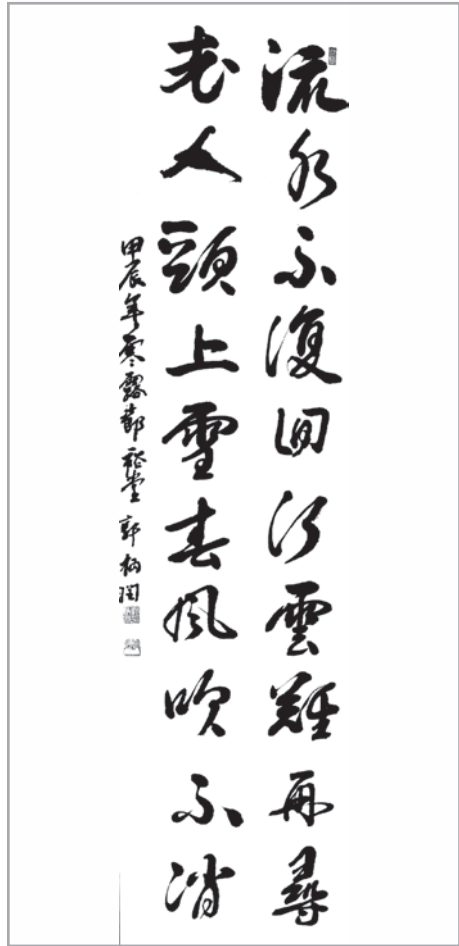 流水不復回行雲難再尋
老人頭上雪春風吹不消
甲辰年寒露節 堂 郭柄